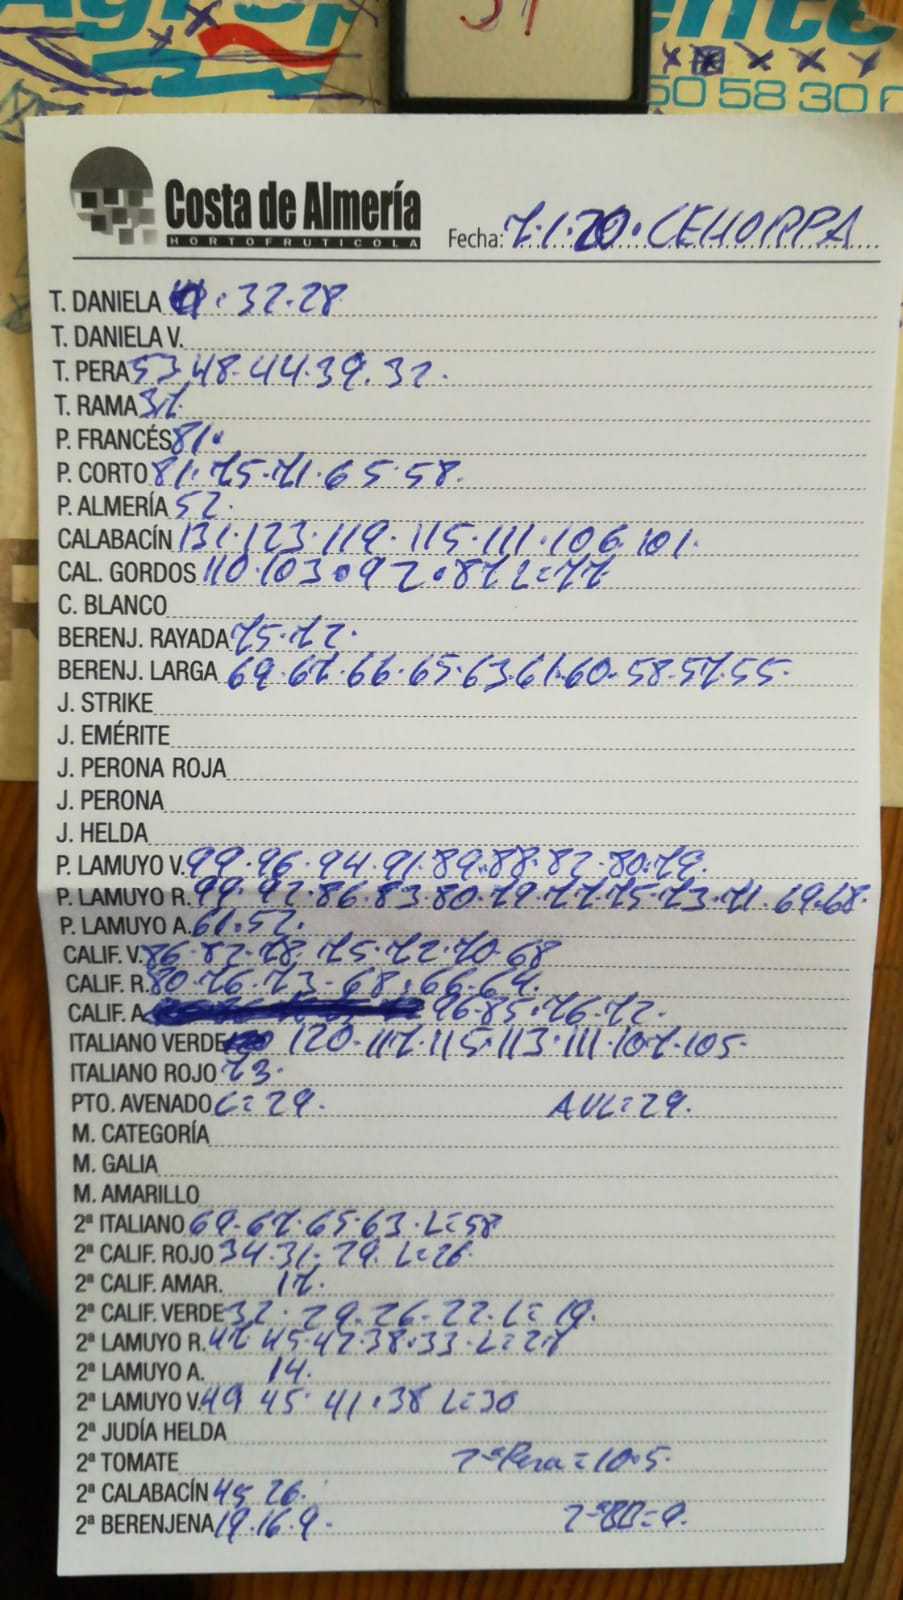 50 58 30
Costa de Almería
HORTOFRUTICOLA
Fecha: 7.1.20. CEHORPA
T. DANIELA 32.28
T. DANIELA V.
T. PERA 53.48.44.39.32.
T. RAMA 37.
P. FRANCÉS 81.
P. CORTO 81.75.71.65.58.
P. ALMERÍA 52.
CALABACÍN 131.123.119.115.111.106.101.
CAL. GORDOS 110.103.92.87 L=77
C. BLANCO
BERENJ. RAYADA 75.72.
BERENJ. LARGA 69.67.66.65.63.61.60.58.57.55.
J. STRIKE
J. EMÉRITE
J. PERONA ROJA
J. PERONA
J. HELDA
P. LAMUYO V. 99.96.94.91.89.88.82.80.79.
P. LAMUYO R. 99.92.86.83.80.79.77.75.73.71.69.68.
P. LAMUYO A. 61.52.
CALIF. V. 86.82.78.75.72.70.68
CALIF. R. 80.76.73.68.66.64.
CALIF. A. 96.85.76.72.
ITALIANO VERDE 120.117.115.113.111.107.105.
ITALIANO ROJO 73.
PTO. AVENADO L=29. AVL=29.
M. CATEGORÍA
M. GALIA
M. AMARILLO
2ª ITALIANO 69.67.65.63.L=58
2ª CALIF. ROJO 34.31.29. L=26
2ª CALIF. AMAR. 17.
2ª CALIF. VERDE 32.29.26.22.L=19.
2ª LAMUYO R. 47 45.42.38.33.L=27
2ª LAMUYO A. 14.
2ª LAMUYO V. 49 45.41.38 L=30
2ª JUDÍA HELDA
2ª TOMATE 2ªPera=10.5.
2ª CALABACÍN 45 26.
2ª BERENJENA 19.16.9.